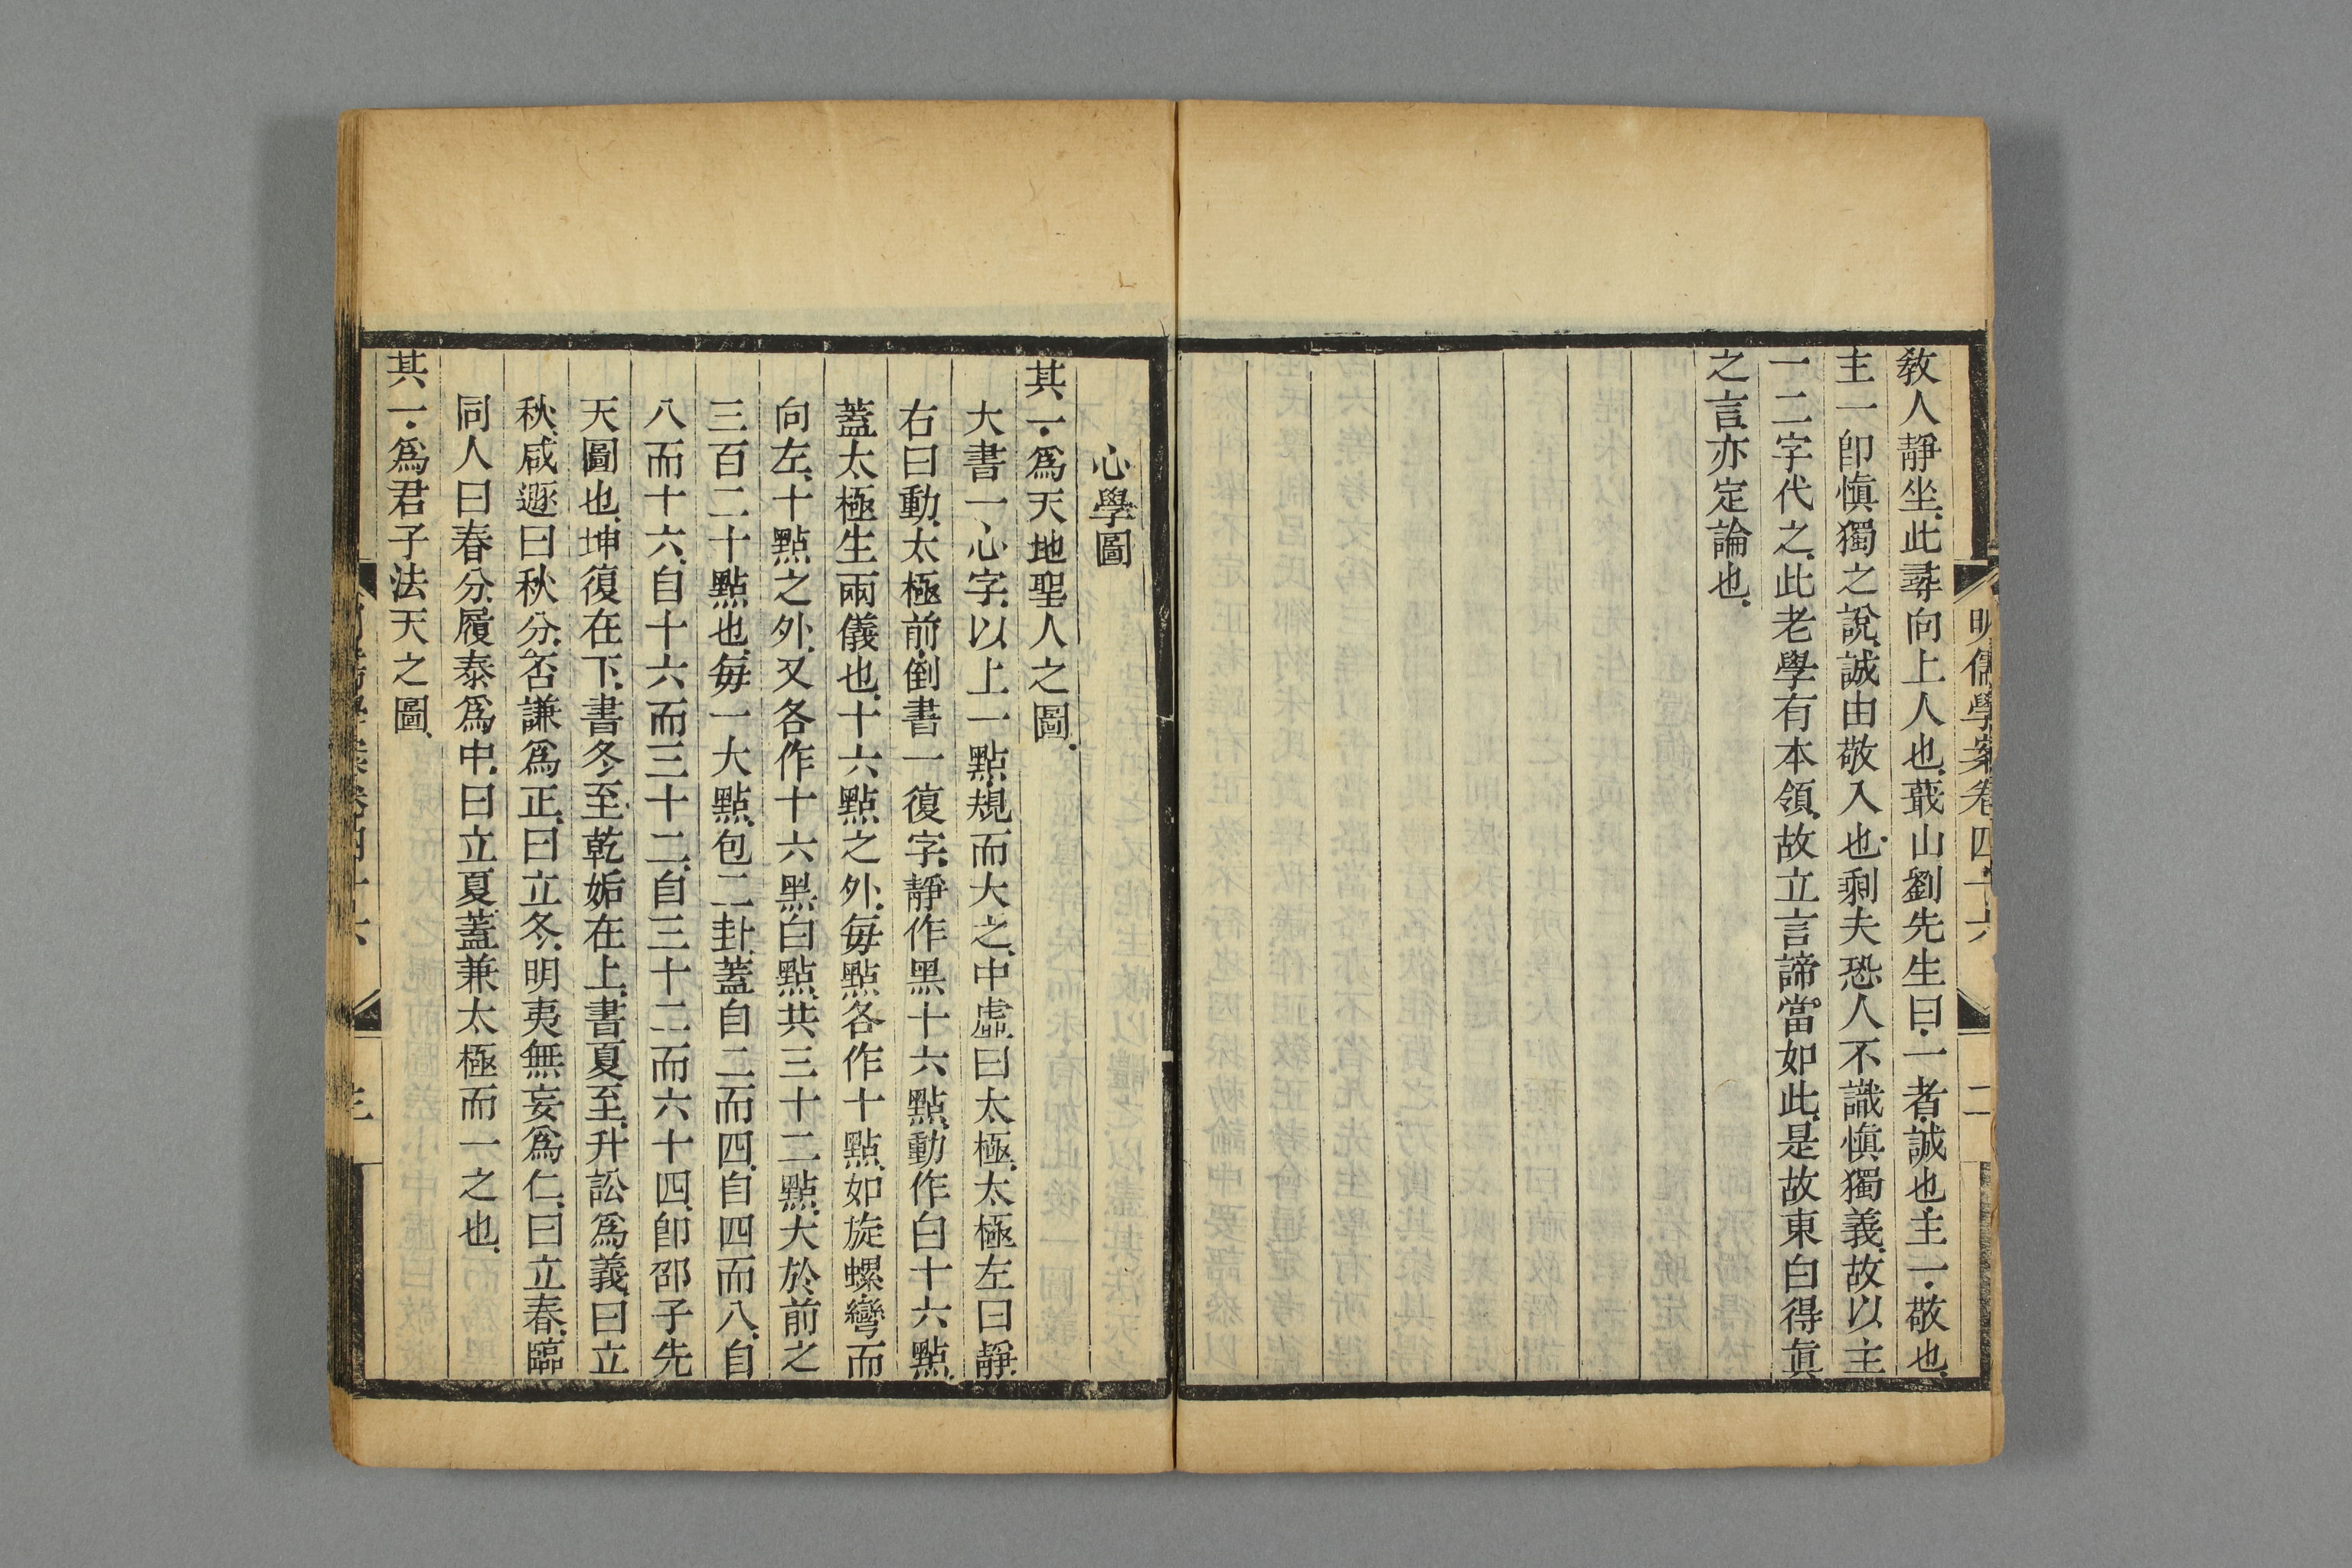 明儒學案卷四十六
二
教人靜坐此尋向上人也蕺山劉先生曰一者誠也主一敬也
主一卽愼獨之說誠由敬入也剩夫恐人不識愼獨義故以主
一二字代之此老學有本領故立言諦當如此是故東白得眞
之言亦定論也
心學圖
其一爲天地聖人之圖
大書一心字以上一點規而大之中虛曰太極太極左曰靜
右曰動太極前倒書一復字靜作黑十六點動作白十六點
蓋太極生兩儀也十六點之外每點各作十點如旋螺彎而
向左十點之外又各作十六黑白點共三十二點大於前之
三百二十點也每一大點包二卦蓋自二而四自四而八自
八而十六自十六而三十二自三十二而六十四卽邵子先
天圖也坤復在下書冬至乾姤在上書夏至升訟爲義曰立
秋咸遯曰秋分否謙爲正曰立冬明夷無妄爲仁曰立春臨
同人曰春分履泰爲中曰立夏蓋兼太極而一之也
其一爲君子法天之圖
卷四十六
三